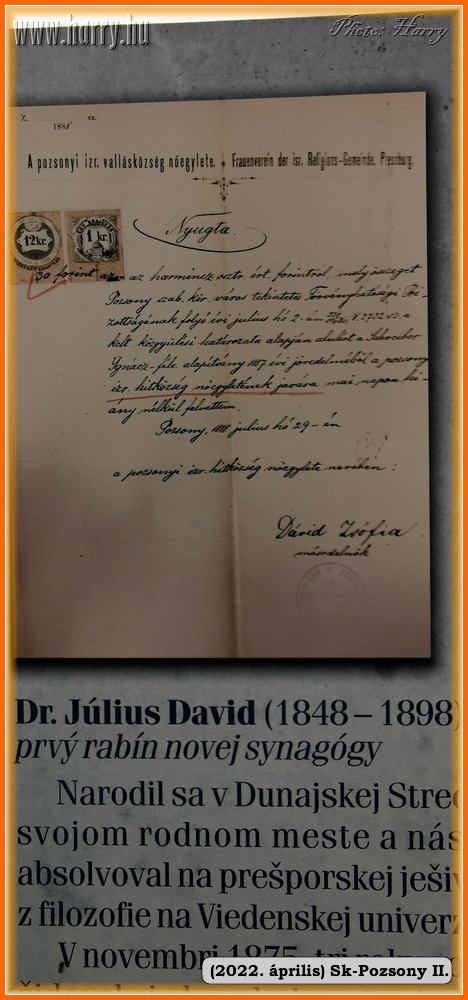 www.harry.hu
Photo: Harry
7. sz.
188
A pozsonyi izr. vallásközség nőegylete. Frauenverein der isr. Religions-Gemeinde Pressburg.
12 kr.
1 kr.
Nyugta
30 forint az az harmincz osztr. ért. forintról, mely összeget
Pozsony szab. kir. város tekintetes Törvényhatósági Bi-
zottságának folyó évi július hó 2-án
kelt közgyűlési határozata alapján alulírt a Schreiber
Ignácz-féle alapítvány 1887 évi jövedelméből a pozsony
izr. hitközség nőegyletének javára mai napon hi-
ány nélkül felvettem.
Pozsony, 1888 július hó 29-én
a pozsonyi izr. hitközség nőegylete nevében:
Dávid Zsófia
másodelnök
Dr. Július David (1848 – 1898)
prvý rabín novej synagógy
Narodil sa v Dunajskej Stred
svojom rodnom meste a nás
absolvoval na prešporskej ješiv
z filozofie na Viedenskej univerz
V novembri 1875, tri roky
(2022. április) Sk-Pozsony II.